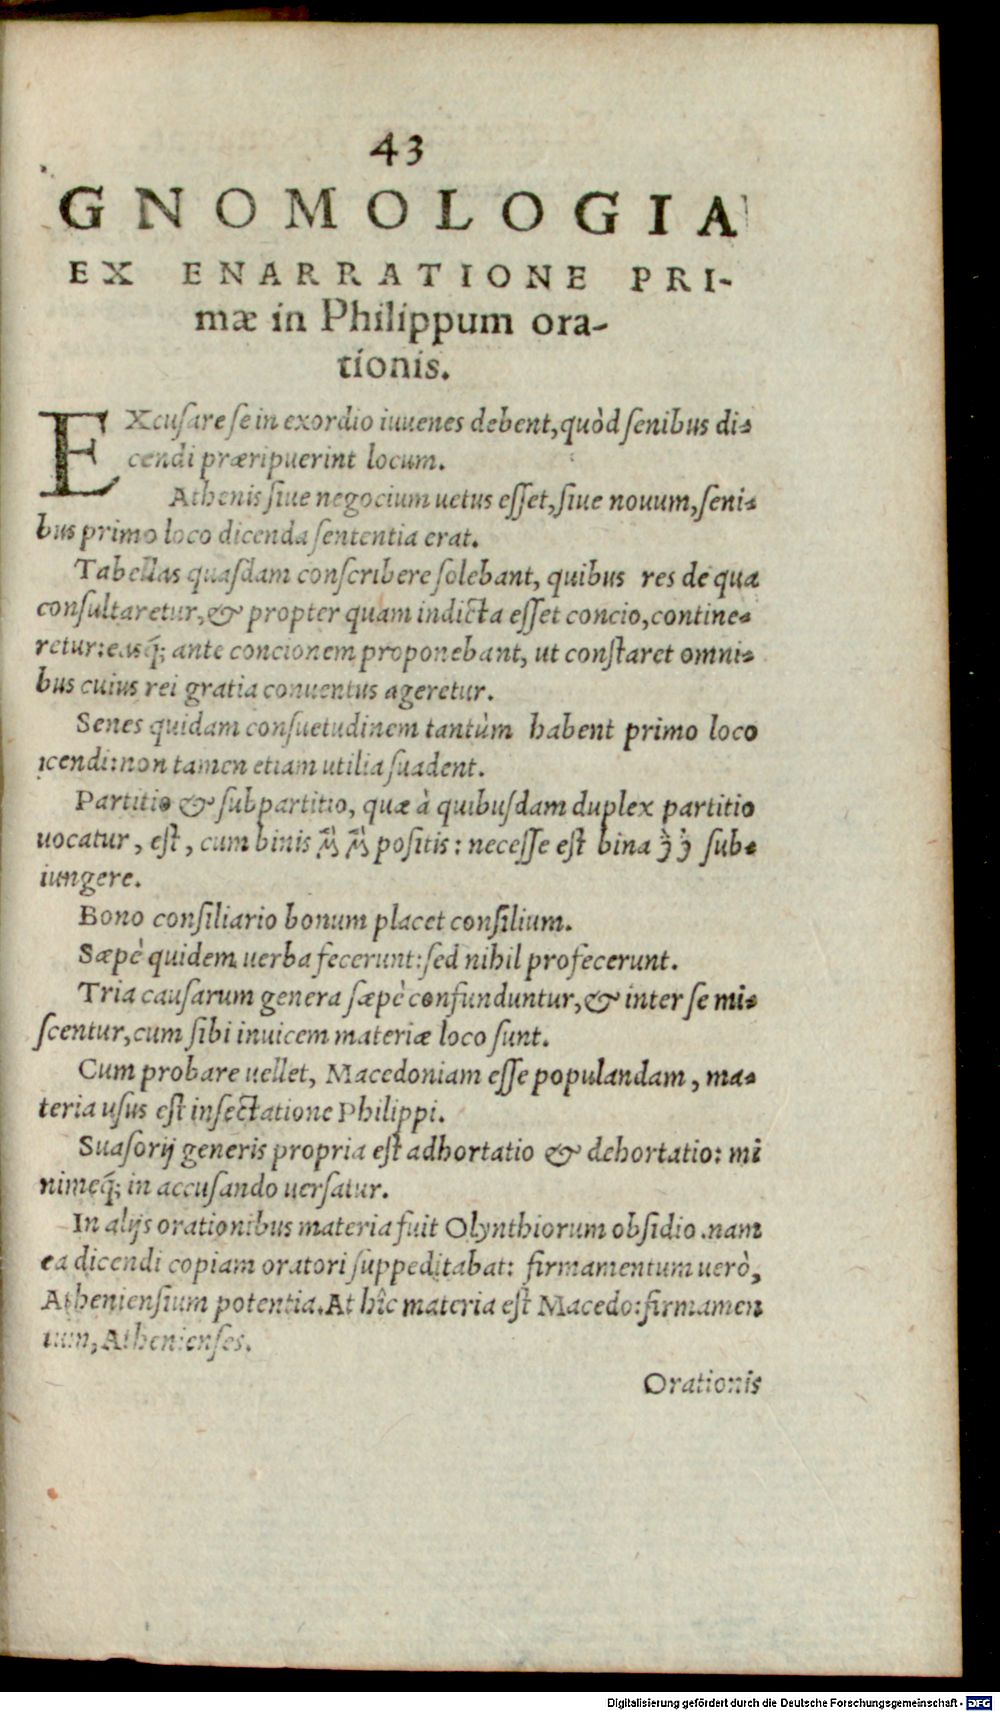 43
GNOMOLOGIA
EX ENARRATIONE PRI-
mæ in Philippum ora-
tionis.
EXcusare se in exordio iuuenes debent, quòd senibus di-
cendi præripuerint locum.
Athenis siue negocium uetus esset, siue nouum, seni-
bus primo loco dicenda sententia erat.
Tabellas quasdam conscribere solebant, quibus res de qua
consultaretur, & propter quam indicta esset concio, contine-
retur: easq́; ante concionem proponebant, ut constaret omni-
bus cuius rei gratia conuentus ageretur.
Senes quidam consuetudinem tantùm habent primo loco
icendi: non tamen etiam utilia suadent.
Partitio & subpartitio, quæ à quibusdam duplex partitio
uocatur, est, cum binis positis: necesse est bina sub-
iungere.
Bono consiliario bonum placet consilium.
Sæpè quidem uerba fecerunt: sed nihil profecerunt.
Tria causarum genera sæpè confunduntur, & inter se mi-
scentur, cum sibi inuicem materiæ loco sunt.
Cum probare uellet, Macedoniam esse populandam, ma-
teria usus est insectatione Philippi.
Suasorij generis propria est adhortatio & dehortatio: mi
nimeq́; in accusando uersatur.
In alijs orationibus materia fuit Olynthiorum obsidio. nam
ea dicendi copiam oratori suppeditabat: firmamentum uerò,
Atheniensium potentia. At hîc materia est Macedo: firmamen
tum, Athenienses.
Orationis
Digitalisierung gefördert durch die Deutsche Forschungsgemeinschaft - DFG